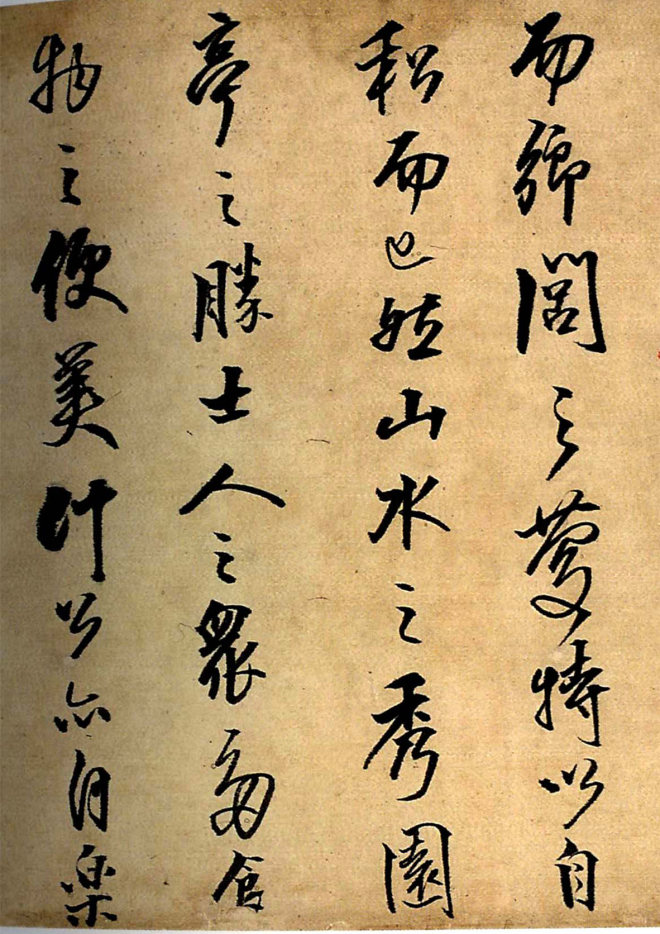 而鄉閭之慶特以自
私而已然山水之秀園
亭之勝士人之衆與食
物之便美計公亦自樂